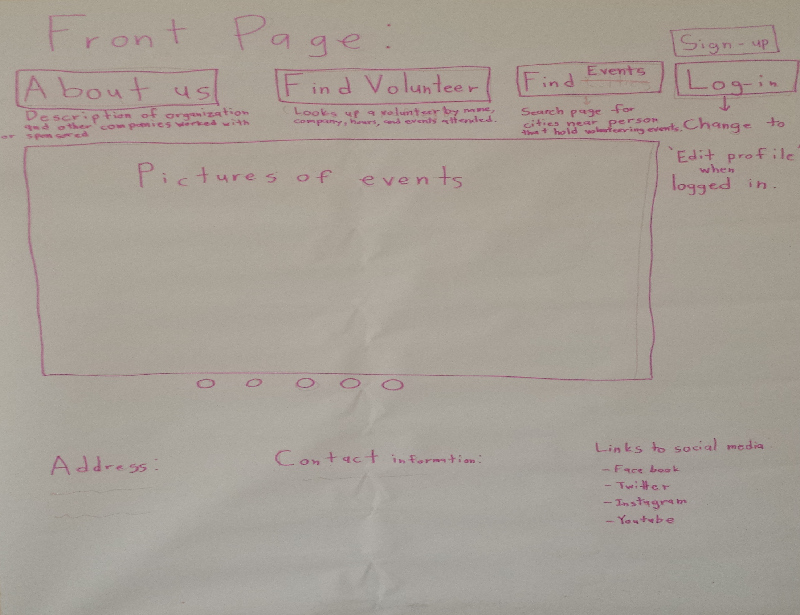 Front Page:
Sign-up
About us
Find Volunteer
Find Events
Log-in
Description of organization
and other companies worked with
or sponsored
Looks up a volunteer by name,
company, hours, and events attended.
Search page for
cities near person
that hold volunteering events.
Change to
'Edit profile'
when
logged in.
Pictures of events
Address:
Contact informtion:
Links to social media:
- Face book
- Twitter
- Instagram
- Youtube